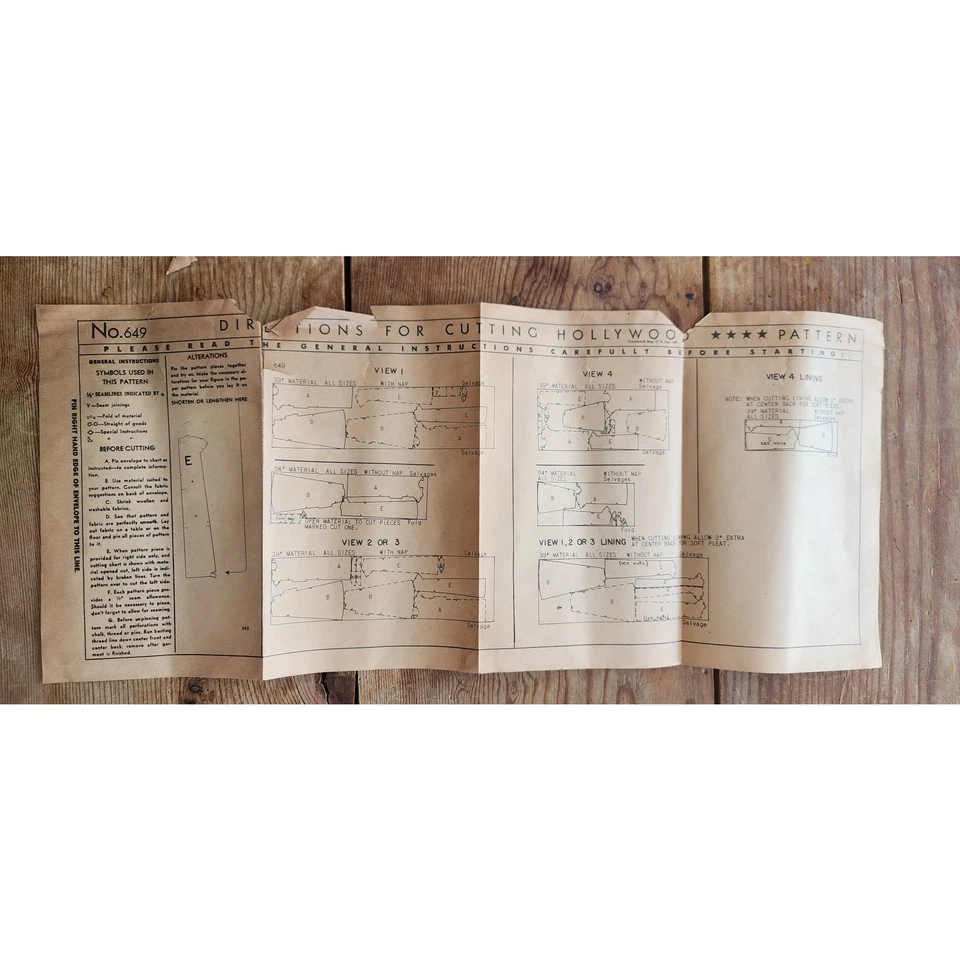 No. 649 DIRECTIONS FOR CUTTING HOLLYWOOD ★★★★ PATTERN
PLEASE READ THE GENERAL INSTRUCTIONS CAREFULLY BEFORE STARTING:
PIN RIGHT HAND EDGE OF ENVELOPE TO THIS LINE.
GENERAL INSTRUCTIONS
SYMBOLS USED IN
THIS PATTERN
½" SEAMLINES INDICATED BY o
V—Seam joinings
—Fold of material
O-O—Straight of goods
◇—Special Instructions
BEFORE CUTTING
A. Pin envelope to chart as
instructed—to complete informa-
tion.
B. Use material suited to
your pattern. Consult the fabric
suggestions on back of envelope.
C. Shrink woollen and
washable fabrics.
D. See that pattern and
fabric are perfectly smooth. Lay
out fabric on a table or on the
floor and pin all pieces of pattern
to it.
E. When pattern piece is
provided for right side only, and
cutting chart is shown with mate-
rial opened out, left side is indi-
cated by broken lines. Turn the
pattern over to cut the left side.
F. Each pattern piece pro-
vides a ½" seam allowance.
Should it be necessary to piece,
don't forget to allow for seaming.
G. Before unpinning pat-
tern mark all perforations with
chalk, thread or pins. Run basting
thread line down center front and
center back; remove after gar-
ment is finished.
ALTERATIONS
Pin the pattern pieces together
and try on. Make the necessary al-
terations for your figure in the pa-
per pattern before you lay it on
the material.
SHORTEN OR LENGTHEN HERE
E
649
649
VIEW 1
39" MATERIAL ALL SIZES WITH NAP Selvage
A
E
B
B
E
A
Selvage
54" MATERIAL ALL SIZES WITHOUT NAP Selvages
B
A
E
OPEN MATERIAL TO CUT PIECES Fold
MARKED CUT ONE.
VIEW 2 OR 3
39" MATERIAL ALL SIZES WITH NAP Selvage
A
E
B
B
E
A
Selvage
VIEW 4
39" MATERIAL WITHOUT NAP
ALL SIZES Selvage
E
B
A
A
B
E
Selvage
54" MATERIAL WITHOUT NAP
ALL SIZES Selvages
B
A
E
Fold
VIEW 1, 2 OR 3 LINING WHEN CUTTING LINING ALLOW 2" EXTRA
AT CENTER BACK FOR SOFT PLEAT.
39" MATERIAL ALL SIZES WITHOUT NAP Selvage
(see note)
B
E
E
B
A
E
(see note)
Selvage
VIEW 4 LINING
NOTE: WHEN CUTTING LINING ALLOW 2" EXTRA
AT CENTER BACK FOR SOFT PLEAT.
39" MATERIAL WITHOUT NAP
ALL SIZES Selvages
A
E
see note
B
Fold